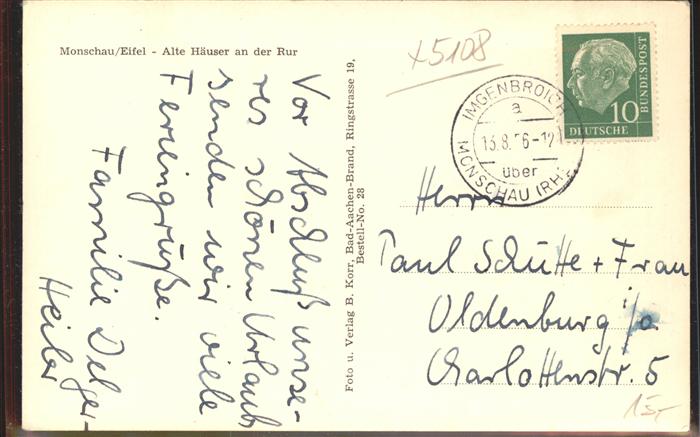 Monschau/Eifel - Alte Häuser an der Rur
Vor Abschluß unse-
res schönen Urlaubs
senden wir viele
Feriengrüße.
Familie Del
Heiler
Foto u. Verlag B. Korr, Bad-Aachen-Brand, Ringstrasse 19,
Bestell-No. 28
x5108
IMGENBROICH
a
13.8.56-12
über
MONSCHAU (RH
10
DEUTSCHE
BUNDESPOST
Herrn
Paul Schütte + Frau
Oldenburg i/o
Charlottenstr. 5
15,-